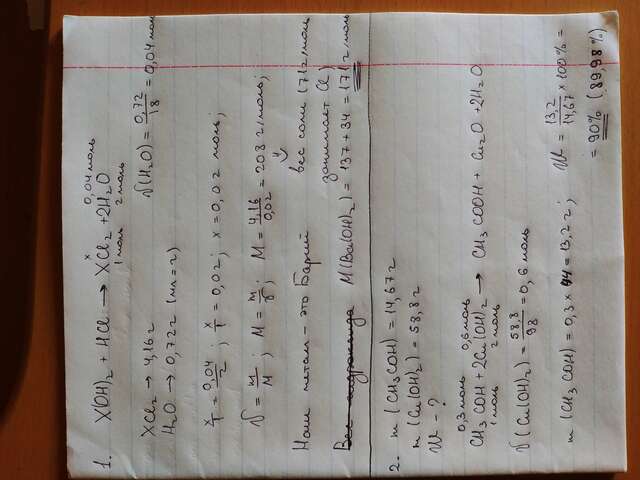 1. X(OH)₂ + HCl → XCl₂ + 2H₂O
x 0,04 моль
1 моль 2 моль
XCl₂ → 4,16 г
ν(H₂O) = 0,72/18 = 0,04 моль
H₂O → 0,72 г (мл = г)
x/1 = 0,04/2 ; x/1 = 0,02 ; x = 0,02 моль;
ν = m/M ; M = m/ν ; M = 4,16/0,02 = 208 г/моль;
Наш метал - это Барий
вес соли (71 г/моль
занимает Cl)
Вес гидроксида M(Ba(OH)₂) = 137 + 34 = 171 г/моль
2. m (CH₃COH) = 14,67 г
m (Cu(OH)₂) = 58,8 г
W - ?
0,3 моль 0,6 моль
CH₃COH + 2Cu(OH)₂ → CH₃COOH + Cu₂O + 2H₂O
1 моль 2 моль
ν (Cu(OH)₂) = 58,8/98 = 0,6 моль
m (CH₃COH) = 0,3 × 44 = 13,2 г ;
W = 13,2/14,67 × 100% =
= 90% (89,98%)